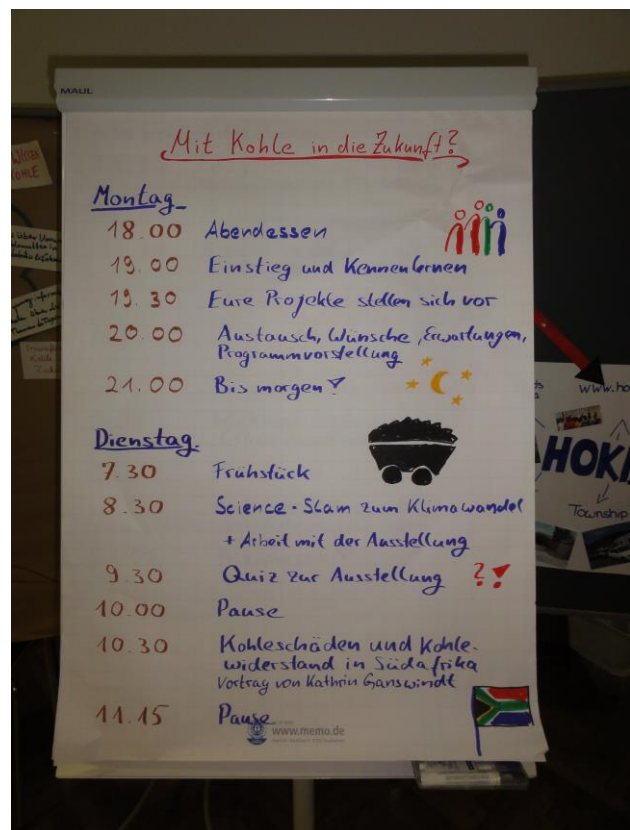 MAUL
Mit Kohle in die Zukunft?
Montag
18.00 Abendessen
19.00 Einstieg und Kennenlernen
19.30 Eure Projekte stellen sich vor
20.00 Austausch, Wünsche, Erwartungen,
Programmvorstellung
21.00 Bis morgen!
Dienstag.
7.30 Frühstück
8.30 Science-Slam zum Klimawandel
+ Arbeit mit der Ausstellung
9.30 Quiz zur Ausstellung ?!
10.00 Pause
10.30 Kohleschäden und Kohle-
widerstand in Südafrika
Vortrag von Kathrin Ganswindt
11.15 Pause
www.memo.de
KOHLE
www.ho
HOK
Township